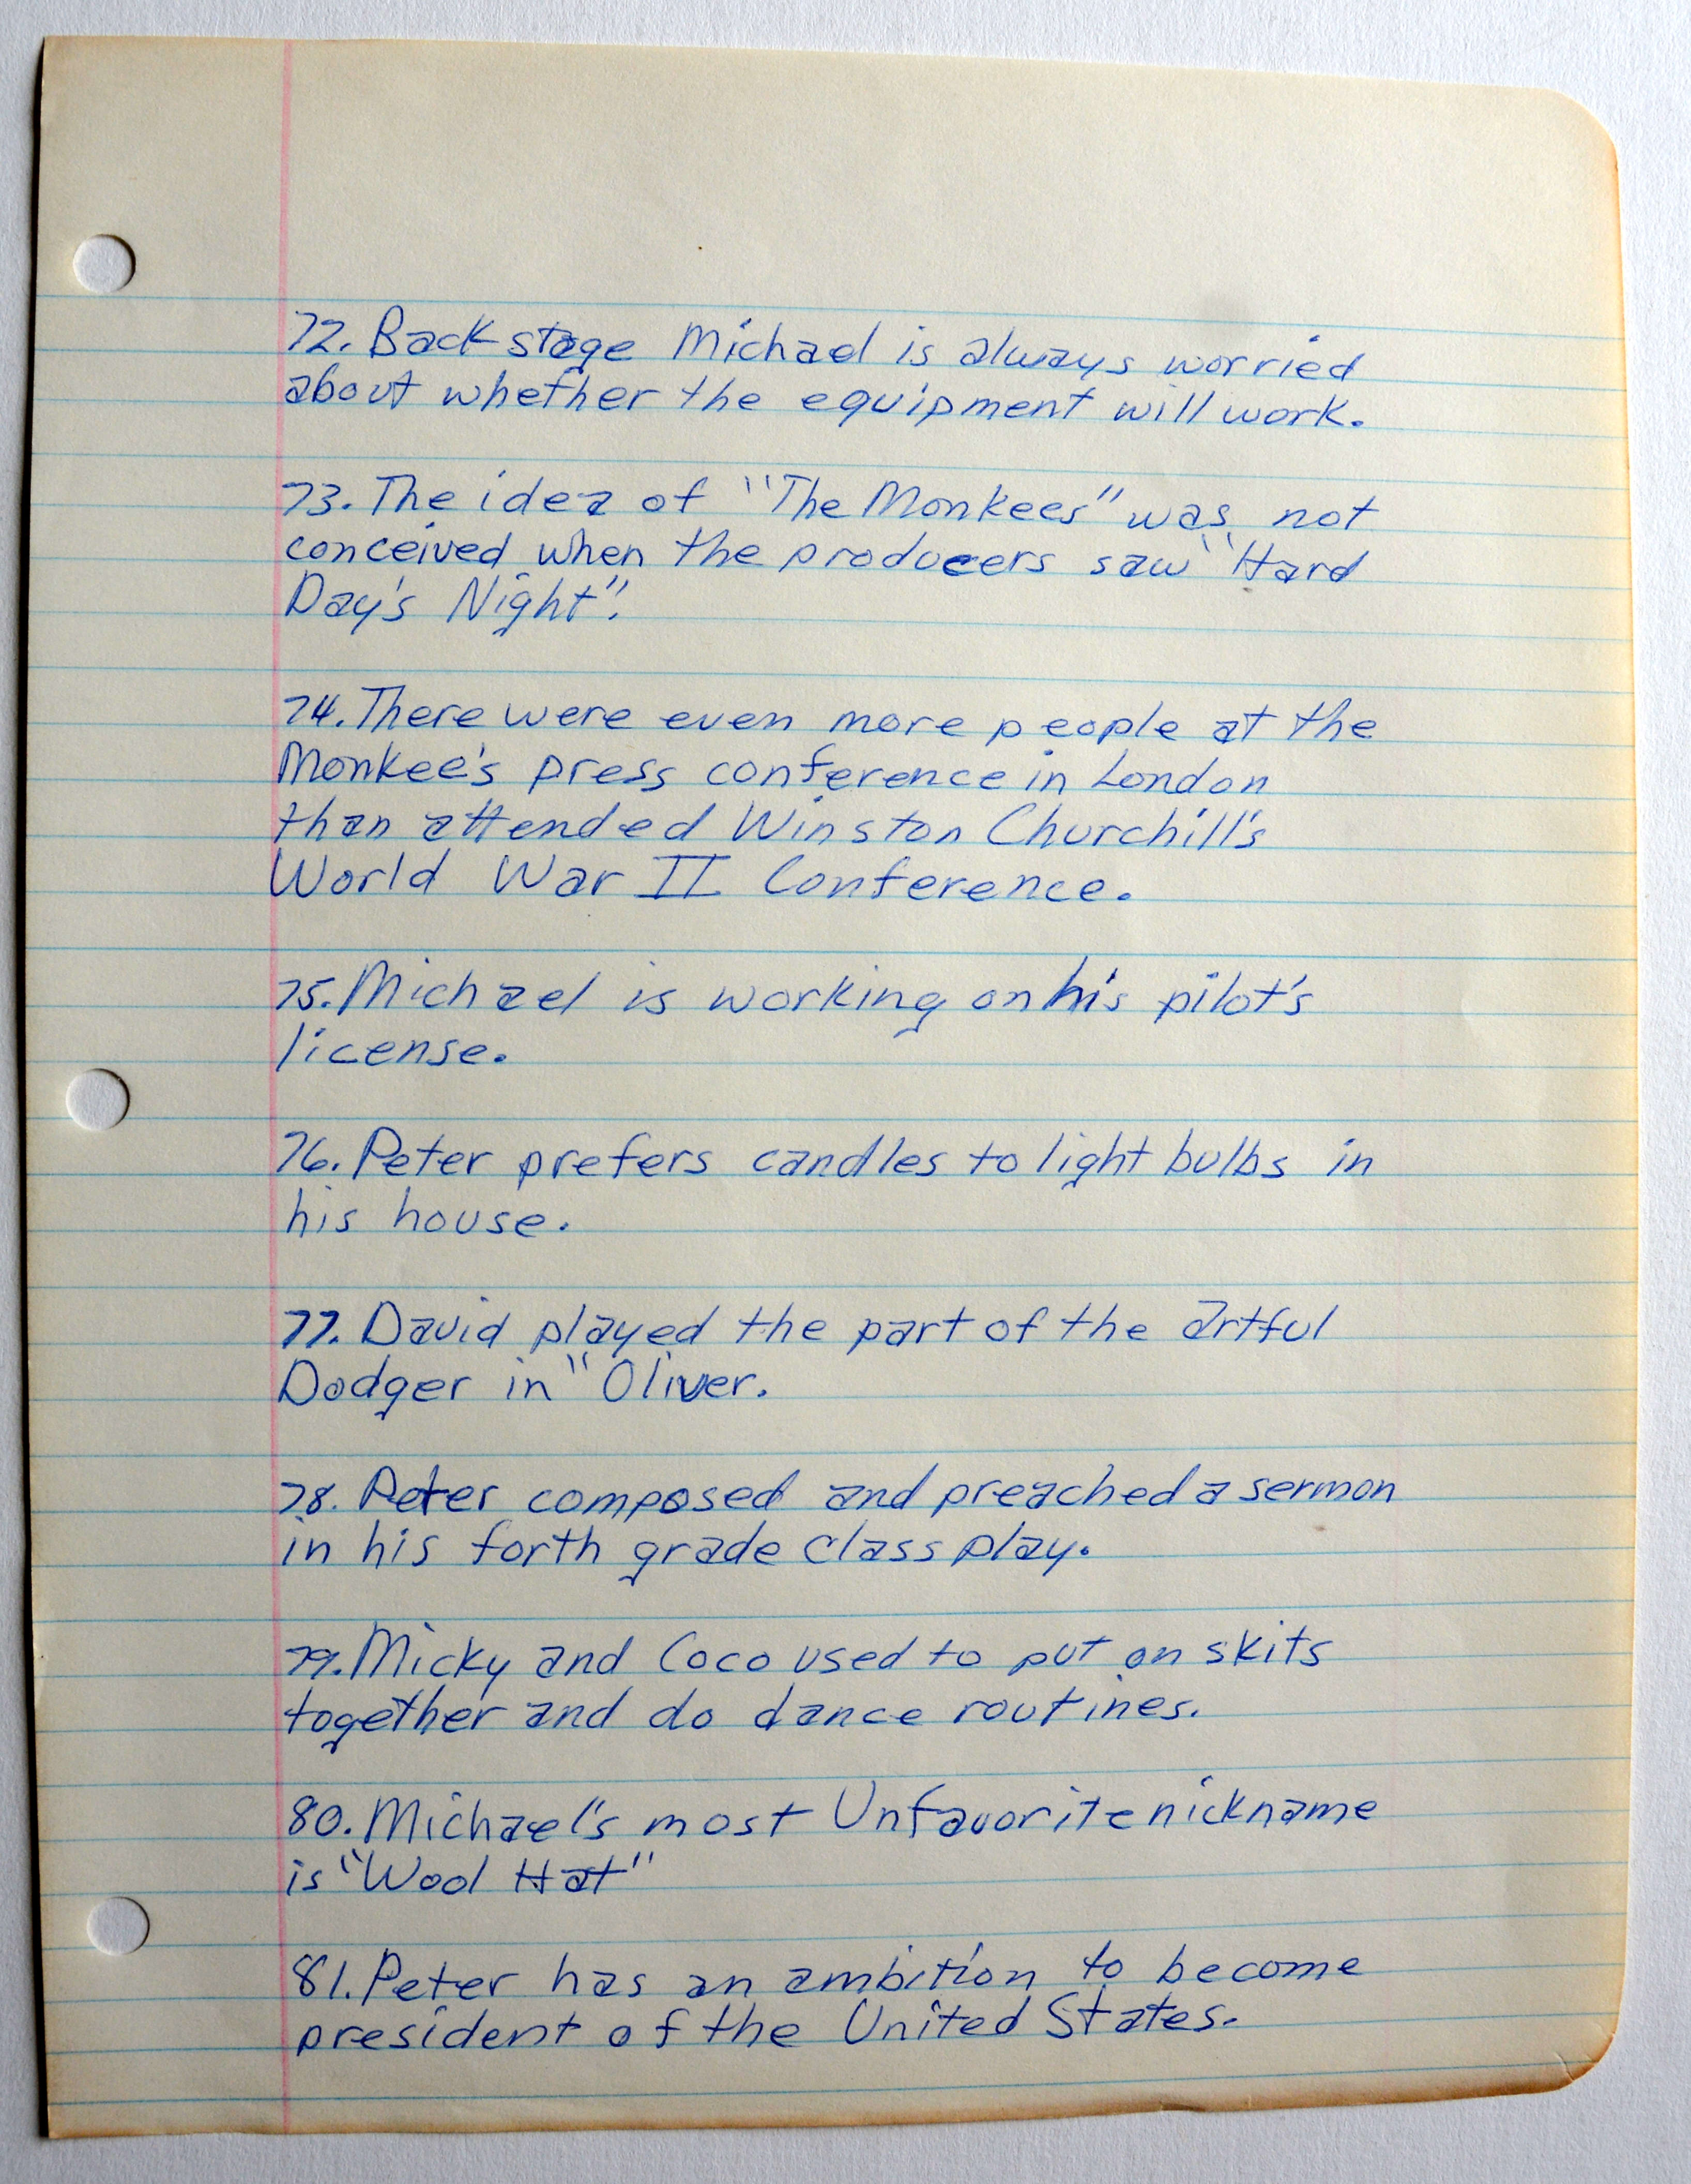 72. Backstage Michael is always worried
about whether the equipment will work.
73. The idea of "The Monkees" was not
conceived when the producers saw "Hard
Day's Night".
74. There were even more people at the
Monkee's press conference in London
than attended Winston Churchill's
World War II Conference.
75. Michael is working on his pilot's
license.
76. Peter prefers candles to light bulbs in
his house.
77. David played the part of the artful
Dodger in "Oliver.
78. Peter composed and preached a sermon
in his forth grade class play.
79. Micky and Coco used to put on skits
together and do dance routines.
80. Michael's most Unfavorite nickname
is "Wool Hat"
81. Peter has an ambition to become
president of the United States.